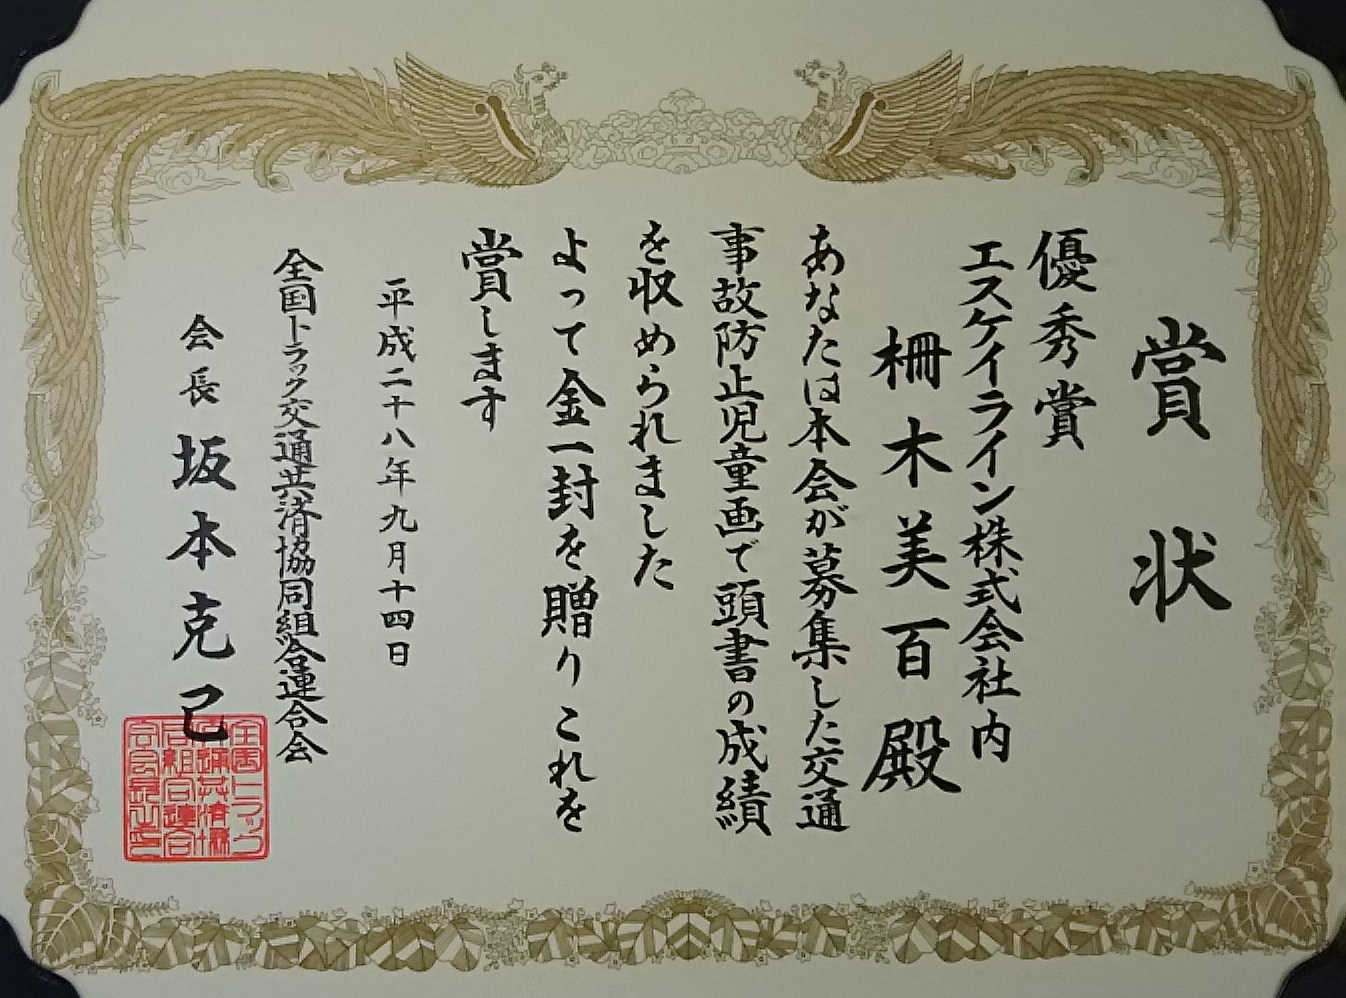 賞状
優秀賞
エスケイライン株式会社内
柵木美百殿
あなたは本会が募集した交通
事故防止児童画で頭書の成績
を収めらてれました
よって金一封を贈りこれを
賞します
平成二十八年九月十四日
全国トラック交通共済協同組合連合会
会長 坂本克己
全国トラック
交通共済協
同組合連合
会会長之印